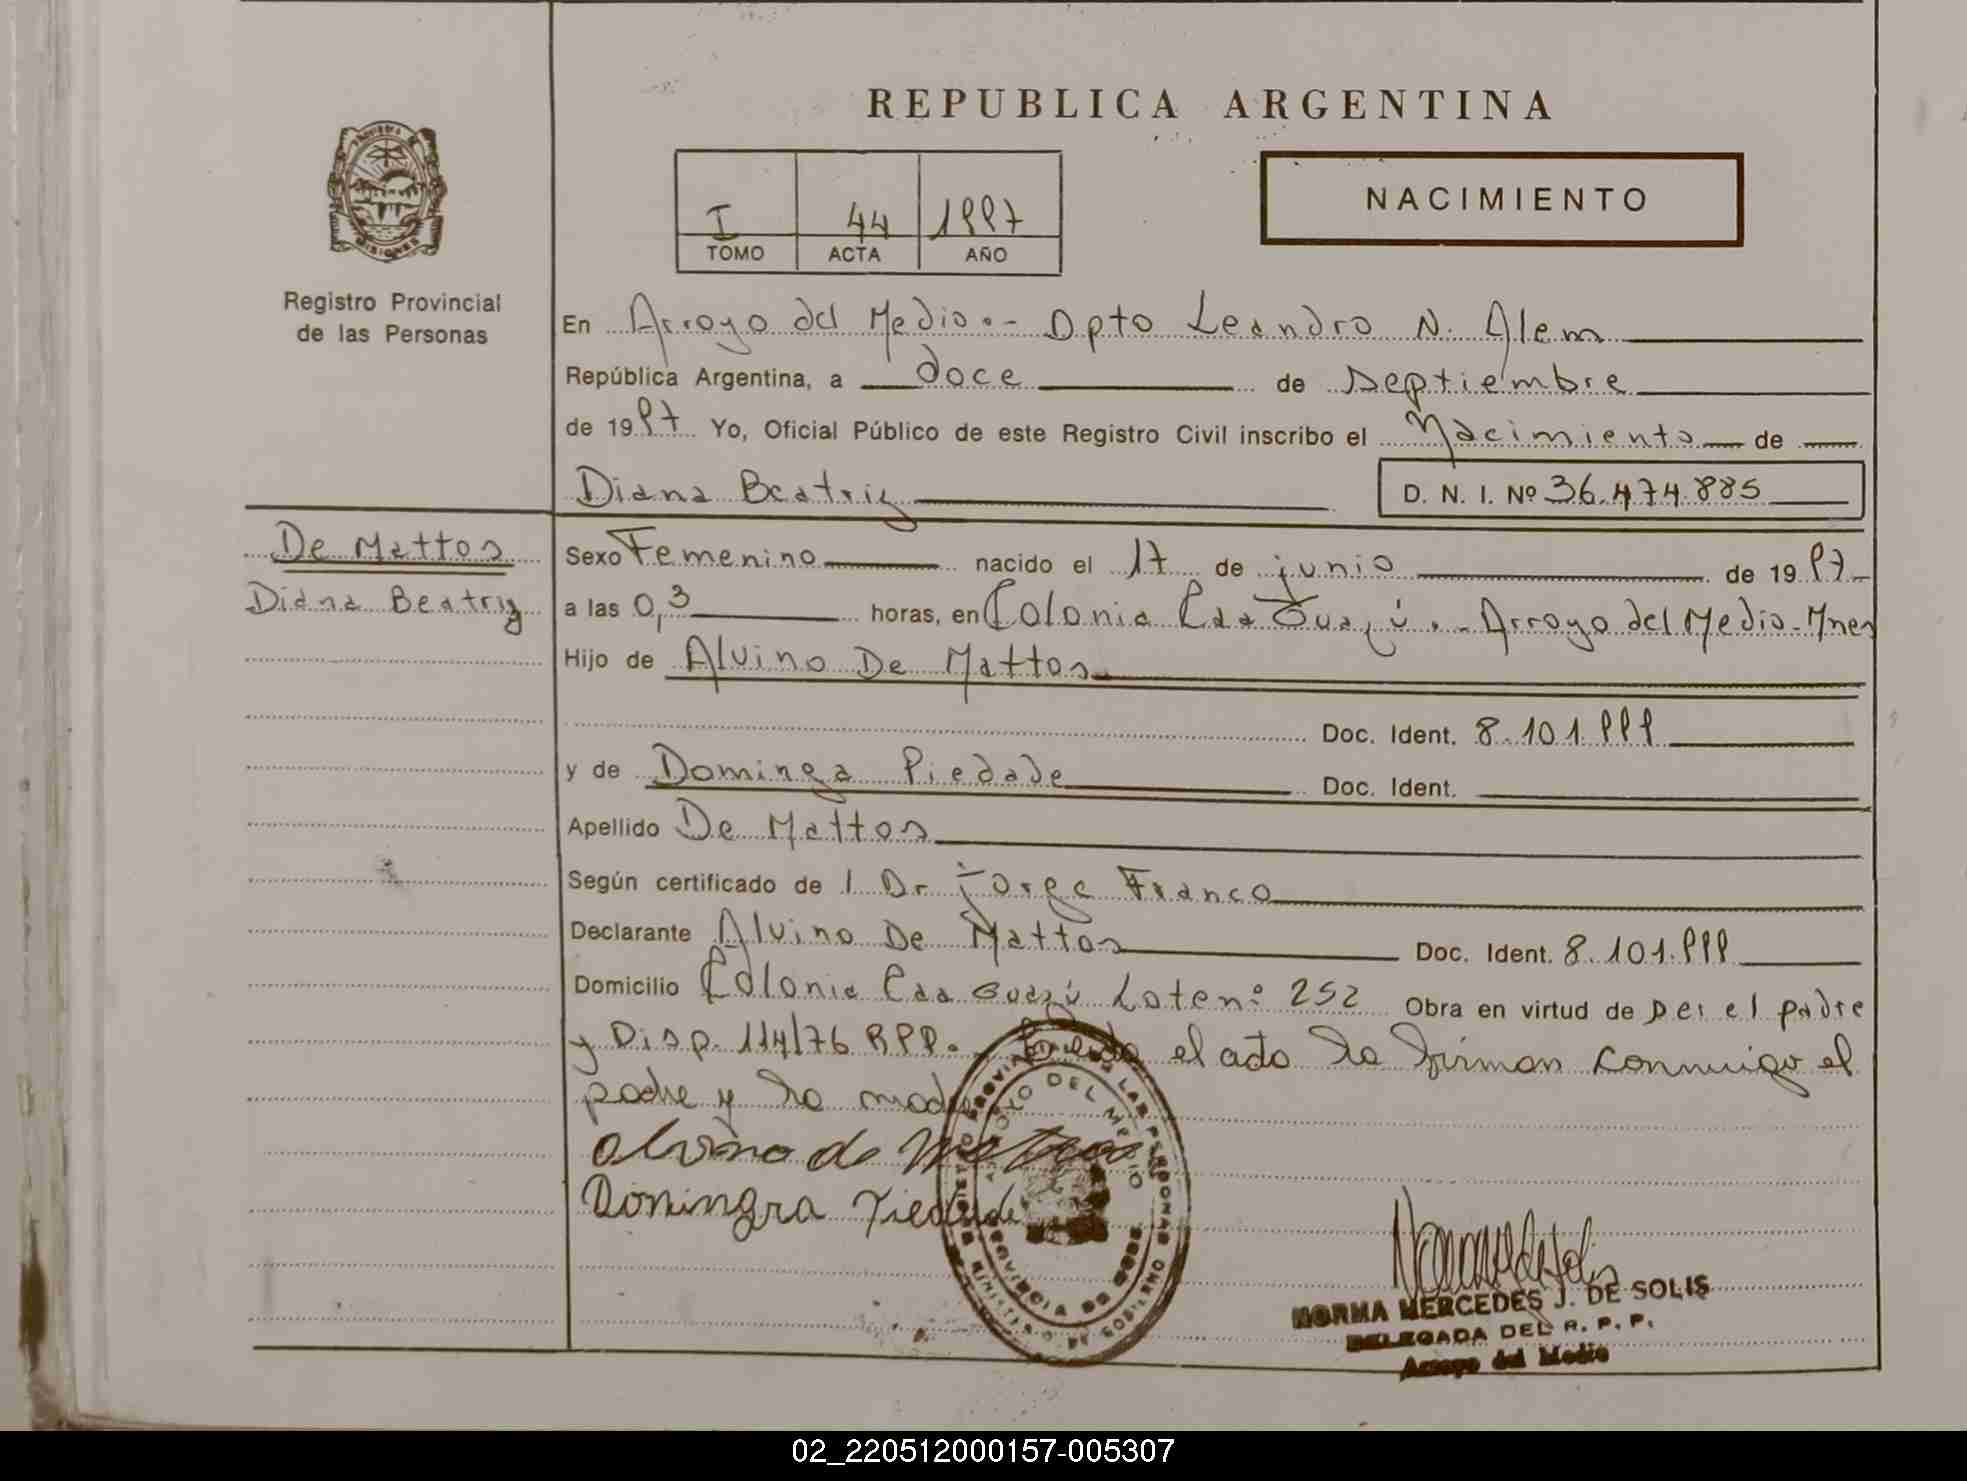 REPUBLICA ARGENTINA
NACIMIENTO
I 44 1997
TOMO ACTA AÑO
MISIONES
Registro Provincial
de las Personas
En Arroyo del Medio.- Dpto Leandro N. Alem
República Argentina, a doce de Septiembre
de 1997 Yo, Oficial Público de este Registro Civil inscribo el Nacimiento de
Diana Beatriz D. N. I. Nº 36.474.885
De Mattos
Diana Beatriz
Sexo Femenino nacido el 17 de junio de 1997-
a las 0,3 horas, en Colonia Caa Guazú.- Arroyo del Medio- Mnes
Hijo de Alvino De Mattos
Doc. Ident. 8.101.999
y de Dominga Piedade Doc. Ident.
Apellido De Mattos
Según certificado de l Dr Jorge Franco
Declarante Alvino De Mattos Doc. Ident. 8.101.999
Domicilio Colonia Caa Guazú Lote nº 252 Obra en virtud de ser el padre
y Disp. 114/76 RPP. el acto lo firman conmigo el
padre y la madre
Alvino de Mattos
Domingra Piedade
NORMA MERCEDES J. DE SOLIS
DELEGADA DEL R. P. P.
Arroyo del Medio
02_220512000157-005307